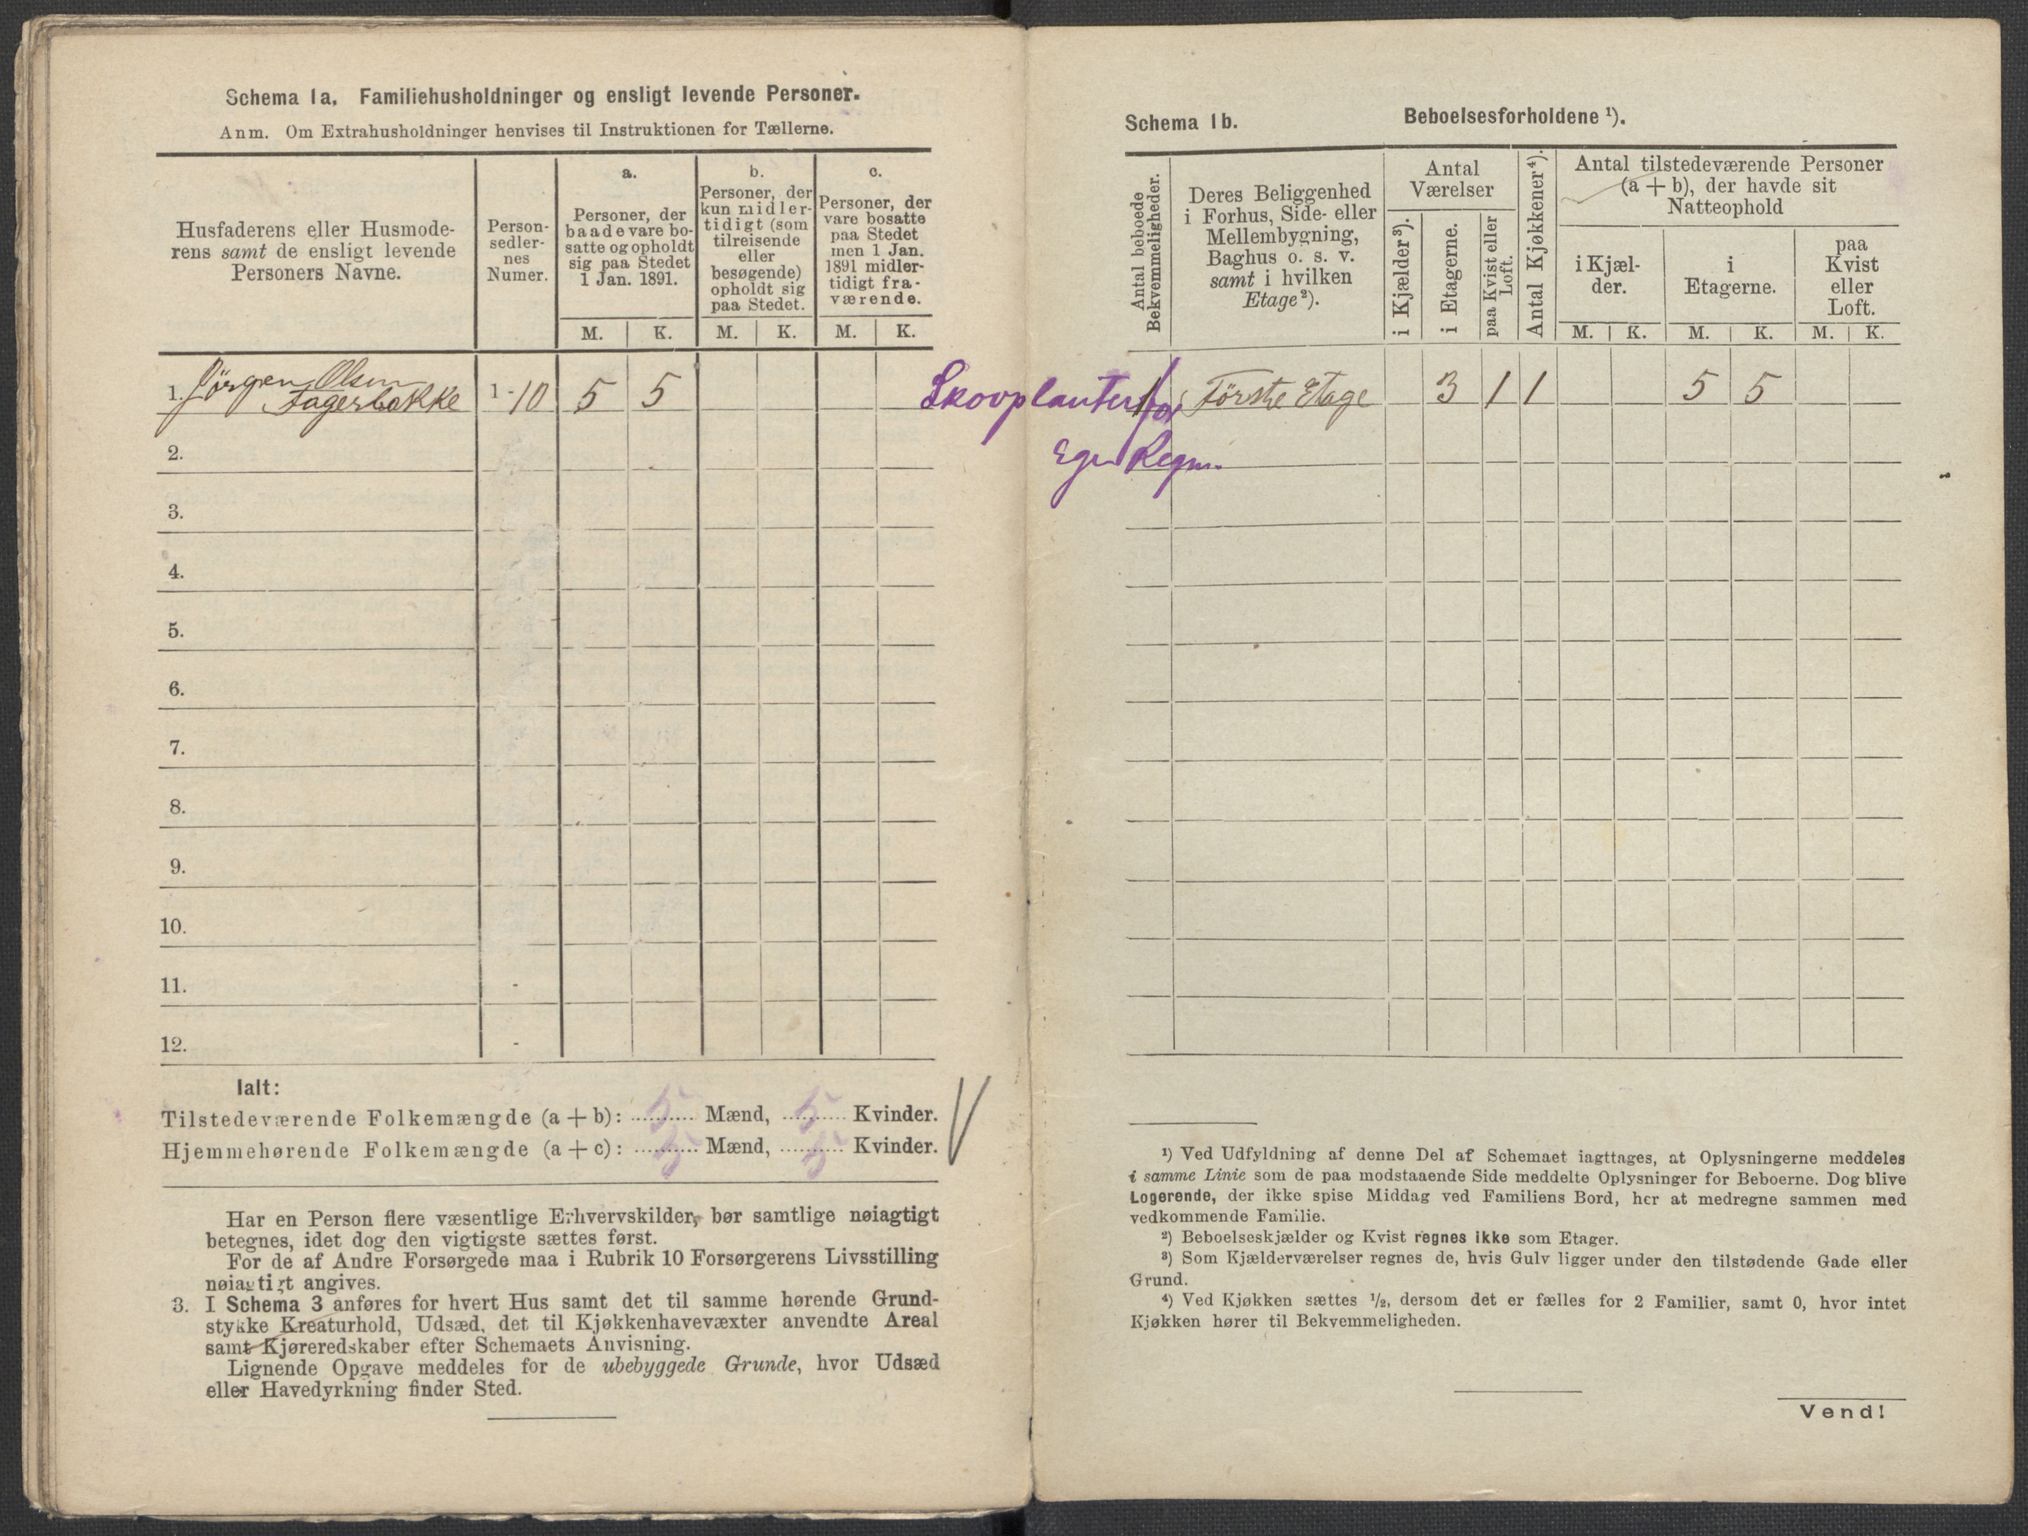 Schema 1a. Familiehusholdninger og ensligt levende Personer.
Anm. Om Extrahusholdninger henvises til Instruktionen for Tællerne.
Husfaderens eller Husmode-
rens samt de ensligt levende
Personers Navne.
Person-
sedler-
nes
Numer.
a.
Personer, der
baade vare bo-
satte og opholdt
sig paa Stedet
1 Jan. 1891.
b.
Personer, der
kun midler-
tidigt (som
tilreisende
eller
besøgende)
opholdt sig
paa Stedet.
c.
Personer, der
vare bosatte
paa Stedet
men 1 Jan.
1891 midler-
tidigt fra-
værende.
M. K. M. K. M. K.
1. Jørgen Olsen
Fagerbakke 1-10 5 5
2.
3.
4.
5.
6.
7.
8.
9.
10.
11. -
12. -
Ialt:
Tilstedeværende Folkemængde (a + b): 5 Mænd, 5 Kvinder.
Hjemmehørende Folkemængde (a + c): 5 Mænd, 5 Kvinder.
Har en Person flere væsentlige Erhvervskilder, bør samtlige nøiagtigt
betegnes, idet dog den vigtigste sættes først.
For de af Andre Forsørgede maa i Rubrik 10 Forsørgerens Livsstilling
nøiagtigt angives.
3. I Schema 3 anføres for hvert Hus samt det til samme hørende Grund-
stykke Kreaturhold, Udsæd, det til Kjøkkenhavevæxter anvendte Areal
samt Kjøreredskaber efter Schemaets Anvisning.
Lignende Opgave meddeles for de ubebyggede Grunde, hvor Udsæd
eller Havedyrkning finder Sted.
Schema 1b. Beboelsesforholdene ¹).
Antal beboede
Bekvemmeligheder.
Deres Beliggenhed
i Forhus, Side- eller
Mellembygning,
Baghus o. s. v.
samt i hvilken
Etage ²).
Antal
Værelser
i Kjælder ³).
i Etagerne.
paa Kvist eller
Loft.
Antal Kjøkkener ⁴).
Antal tilstedeværende Personer
(a + b), der havde sit
Natteophold
i Kjæl-
der.
i
Etagerne.
paa
Kvist
eller
Loft.
M. K. M. K. M. K.
1 Første Etage 3 1 1 5 5
Skovplanter for
Egen Regn.
¹) Ved Udfyldning af denne Del af Schemaet iagttages, at Oplysningerne meddeles
i samme Linie som de paa modstaaende Side meddelte Oplysninger for Beboerne. Dog blive
Logerende, der ikke spise Middag ved Familiens Bord, her at medregne sammen med
vedkommende Familie.
²) Beboelseskjælder og Kvist regnes ikke som Etager.
³) Som Kjælderværelser regnes de, hvis Gulv ligger under den tilstødende Gade eller
Grund.
⁴) Ved Kjøkken sættes ½, dersom det er fælles for 2 Familier, samt 0, hvor intet
Kjøkken hører til Bekvemmeligheden.
Vend!